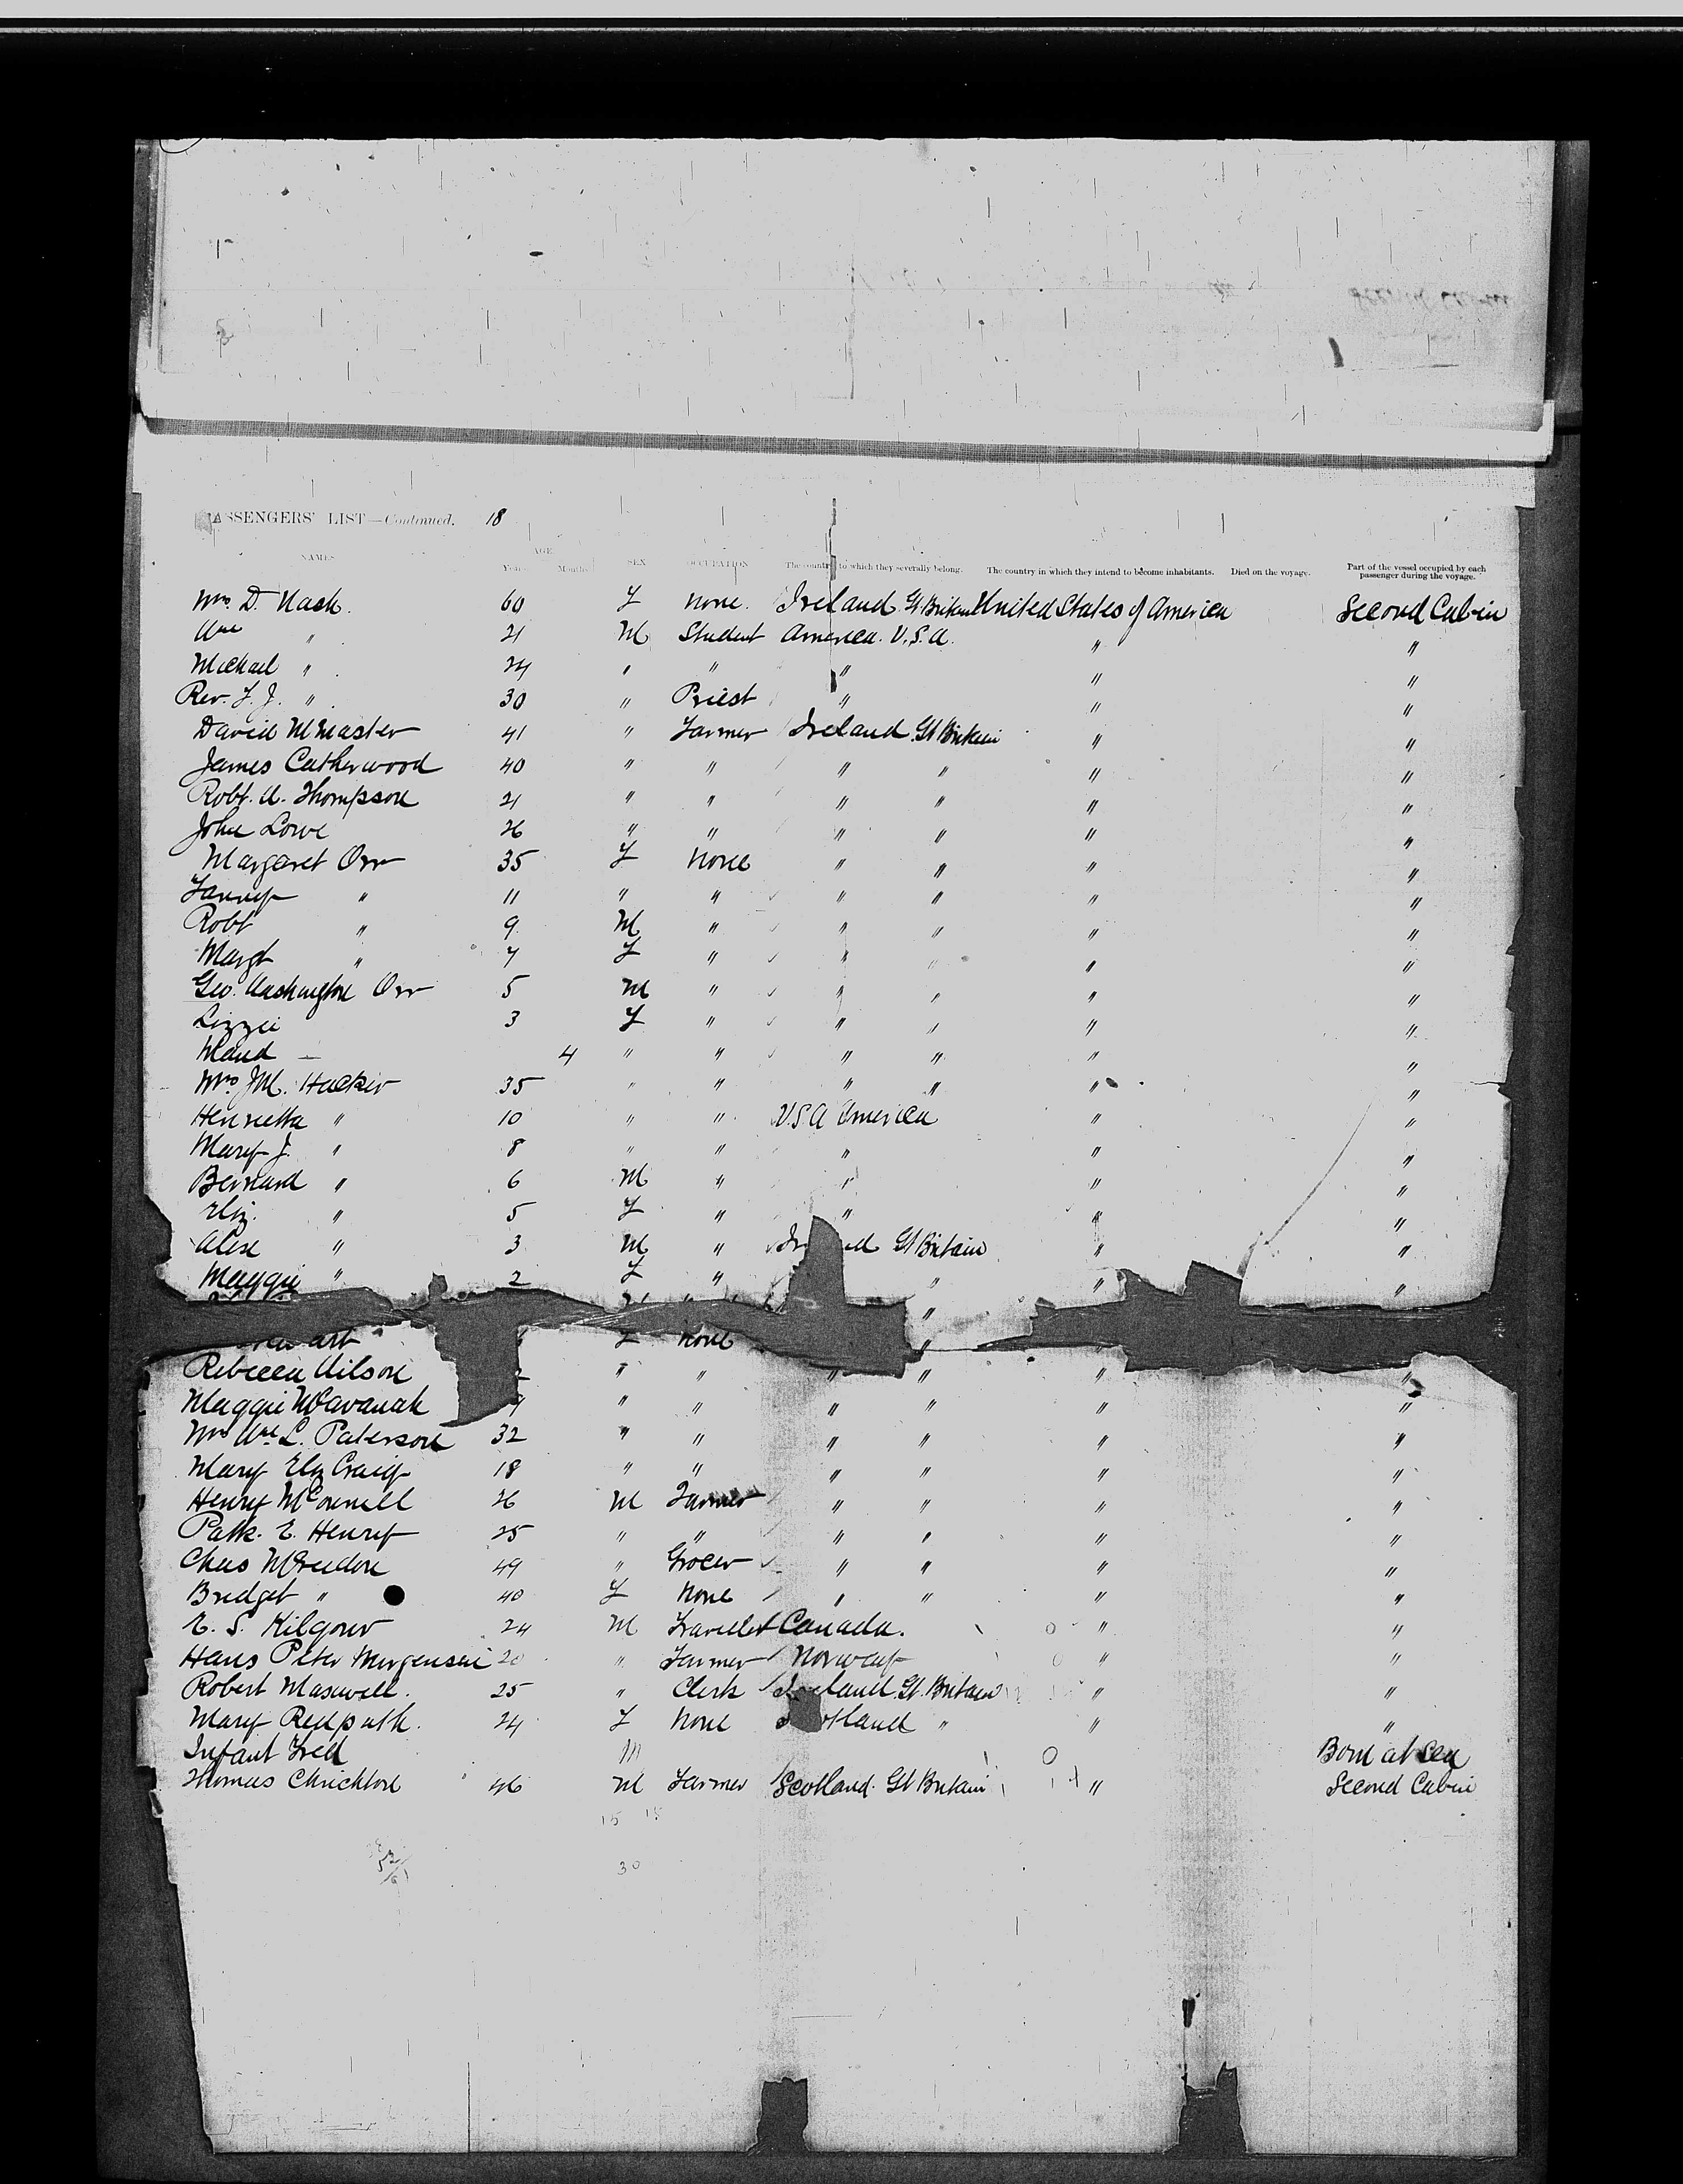 PASSENGERS' LIST—Continued. 18
NAMES AGE SEX OCCUPATION The country to which they severally belong. The country in which they intend to become inhabitants. Died on the voyage. Part of the vessel occupied by each passenger during the voyage.
Years Months
Mrs. D. Nash. 60 F None. Ireland Gt. Britain United States of America Second Cabin
Wm " 21 M Student America. U.S.A. " "
Michael " 24 " " " " "
Rev. F. J. " 30 " Priest " " "
David McMaster 41 " Farmer Ireland Gt Britain " "
James Catherwood 40 " " " " " "
Robt. A. Thompson 21 " " " " " "
John Lowe 26 " " " " " "
Margaret Orr 35 F None " " " "
Fanny " 11 " " " " " "
Robt " 9 M " " " " "
Margt " 7 F " " " " "
Geo. Washington Orr 5 M " " " " "
Lizzie 3 F " " " " "
Maud — 4 " " " " " "
Mrs. J.M. Hacker 35 " " " " " "
Henrietta " 10 " " U.S.A America " "
Mary J. " 8 " " " " "
Bernard " 6 M " " " "
Eliz. " 5 F " " " "
Alex " 3 M " Ireland Gt Britain " "
Maggie " 2 F " " " "
"
art F None "
Rebecca Wilson " " " " " "
Maggie McCavanah " " " " " "
Mrs Wm L. Paterson 32 " " " " " "
Mary Eliz Craig 18 " " " " " "
Henry McConnell 26 M Farmer " " " "
Patk. E. Henry 25 " " " " " "
Chas McCreedon 49 " Grocer " " " "
Bridget " 40 F None " " " "
E. S. Kilgour 24 M Traveller Canada. 0 " "
Hans Peter 20 " Farmer Norway 0 " "
Robert Maxwell. 25 " Clerk Ireland. Gt. Britain " "
Mary Redpath. 24 F None Scotland " " "
Infant Fred M 0 Born at Sea
Thomas Chrichton 46 M Farmer Scotland. Gt Britain " Second Cabin
15 15
30